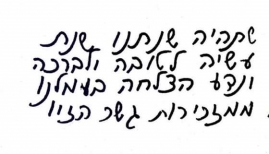 שתהיה שנתנו שנת
עשיה לטובה ולברכה
ונדע הצלחה בעמלנו
ממזכירות גשר הזיו